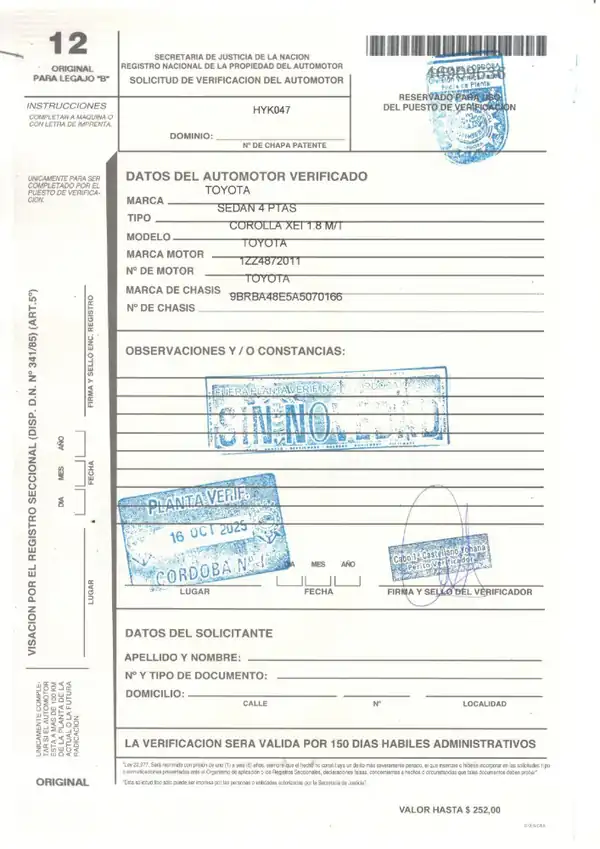 12
ORIGINAL
PARA LEGAJO "B"
SECRETARIA DE JUSTICIA DE LA NACION
REGISTRO NACIONAL DE LA PROPIEDAD DEL AUTOMOTOR
SOLICITUD DE VERIFICACION DEL AUTOMOTOR
RESERVADO PARA USO
DEL PUESTO DE VERIFICACION
INSTRUCCIONES
COMPLETAR A MAQUINA O
CON LETRA DE IMPRENTA.
HYK047
DOMINIO:
Nº DE CHAPA PATENTE
UNICAMENTE PARA SER
COMPLETADO POR EL
PUESTO DE VERIFICA-
CION.
DATOS DEL AUTOMOTOR VERIFICADO
MARCA TOYOTA
TIPO SEDAN 4 PTAS
MODELO COROLLA XEI 1.8 M/T
MARCA MOTOR TOYOTA
Nº DE MOTOR 1ZZ4872011
MARCA DE CHASIS TOYOTA
Nº DE CHASIS 9BRBA48E5A5070166
OBSERVACIONES Y / O CONSTANCIAS:
SIN NOVEDAD
PLANTA VERIF.
16 OCT 2025
CORDOBA N° 1
Castellano Yohana
Perito Verificador
LUGAR
DIA MES AÑO
FECHA
FIRMA Y SELLO DEL VERIFICADOR
VISACION POR EL REGISTRO SECCIONAL (DISP. D.N. Nº 341/85) (ART.5º)
FIRMA Y SELLO ENC. REGISTRO
DIA MES AÑO
FECHA
LUGAR
DATOS DEL SOLICITANTE
APELLIDO Y NOMBRE:
Nº Y TIPO DE DOCUMENTO:
DOMICILIO:
CALLE Nº LOCALIDAD
UNICAMENTE COMPLE-
TAR SI EL AUTOMOTOR
ESTA A MAS DE 100 KM
DE LA PLANTA DE LA
ACTUAL O LA FUTURA
RADICACION
LA VERIFICACION SERA VALIDA POR 150 DIAS HABILES ADMINISTRATIVOS
ORIGINAL
VALOR HASTA $ 252,00